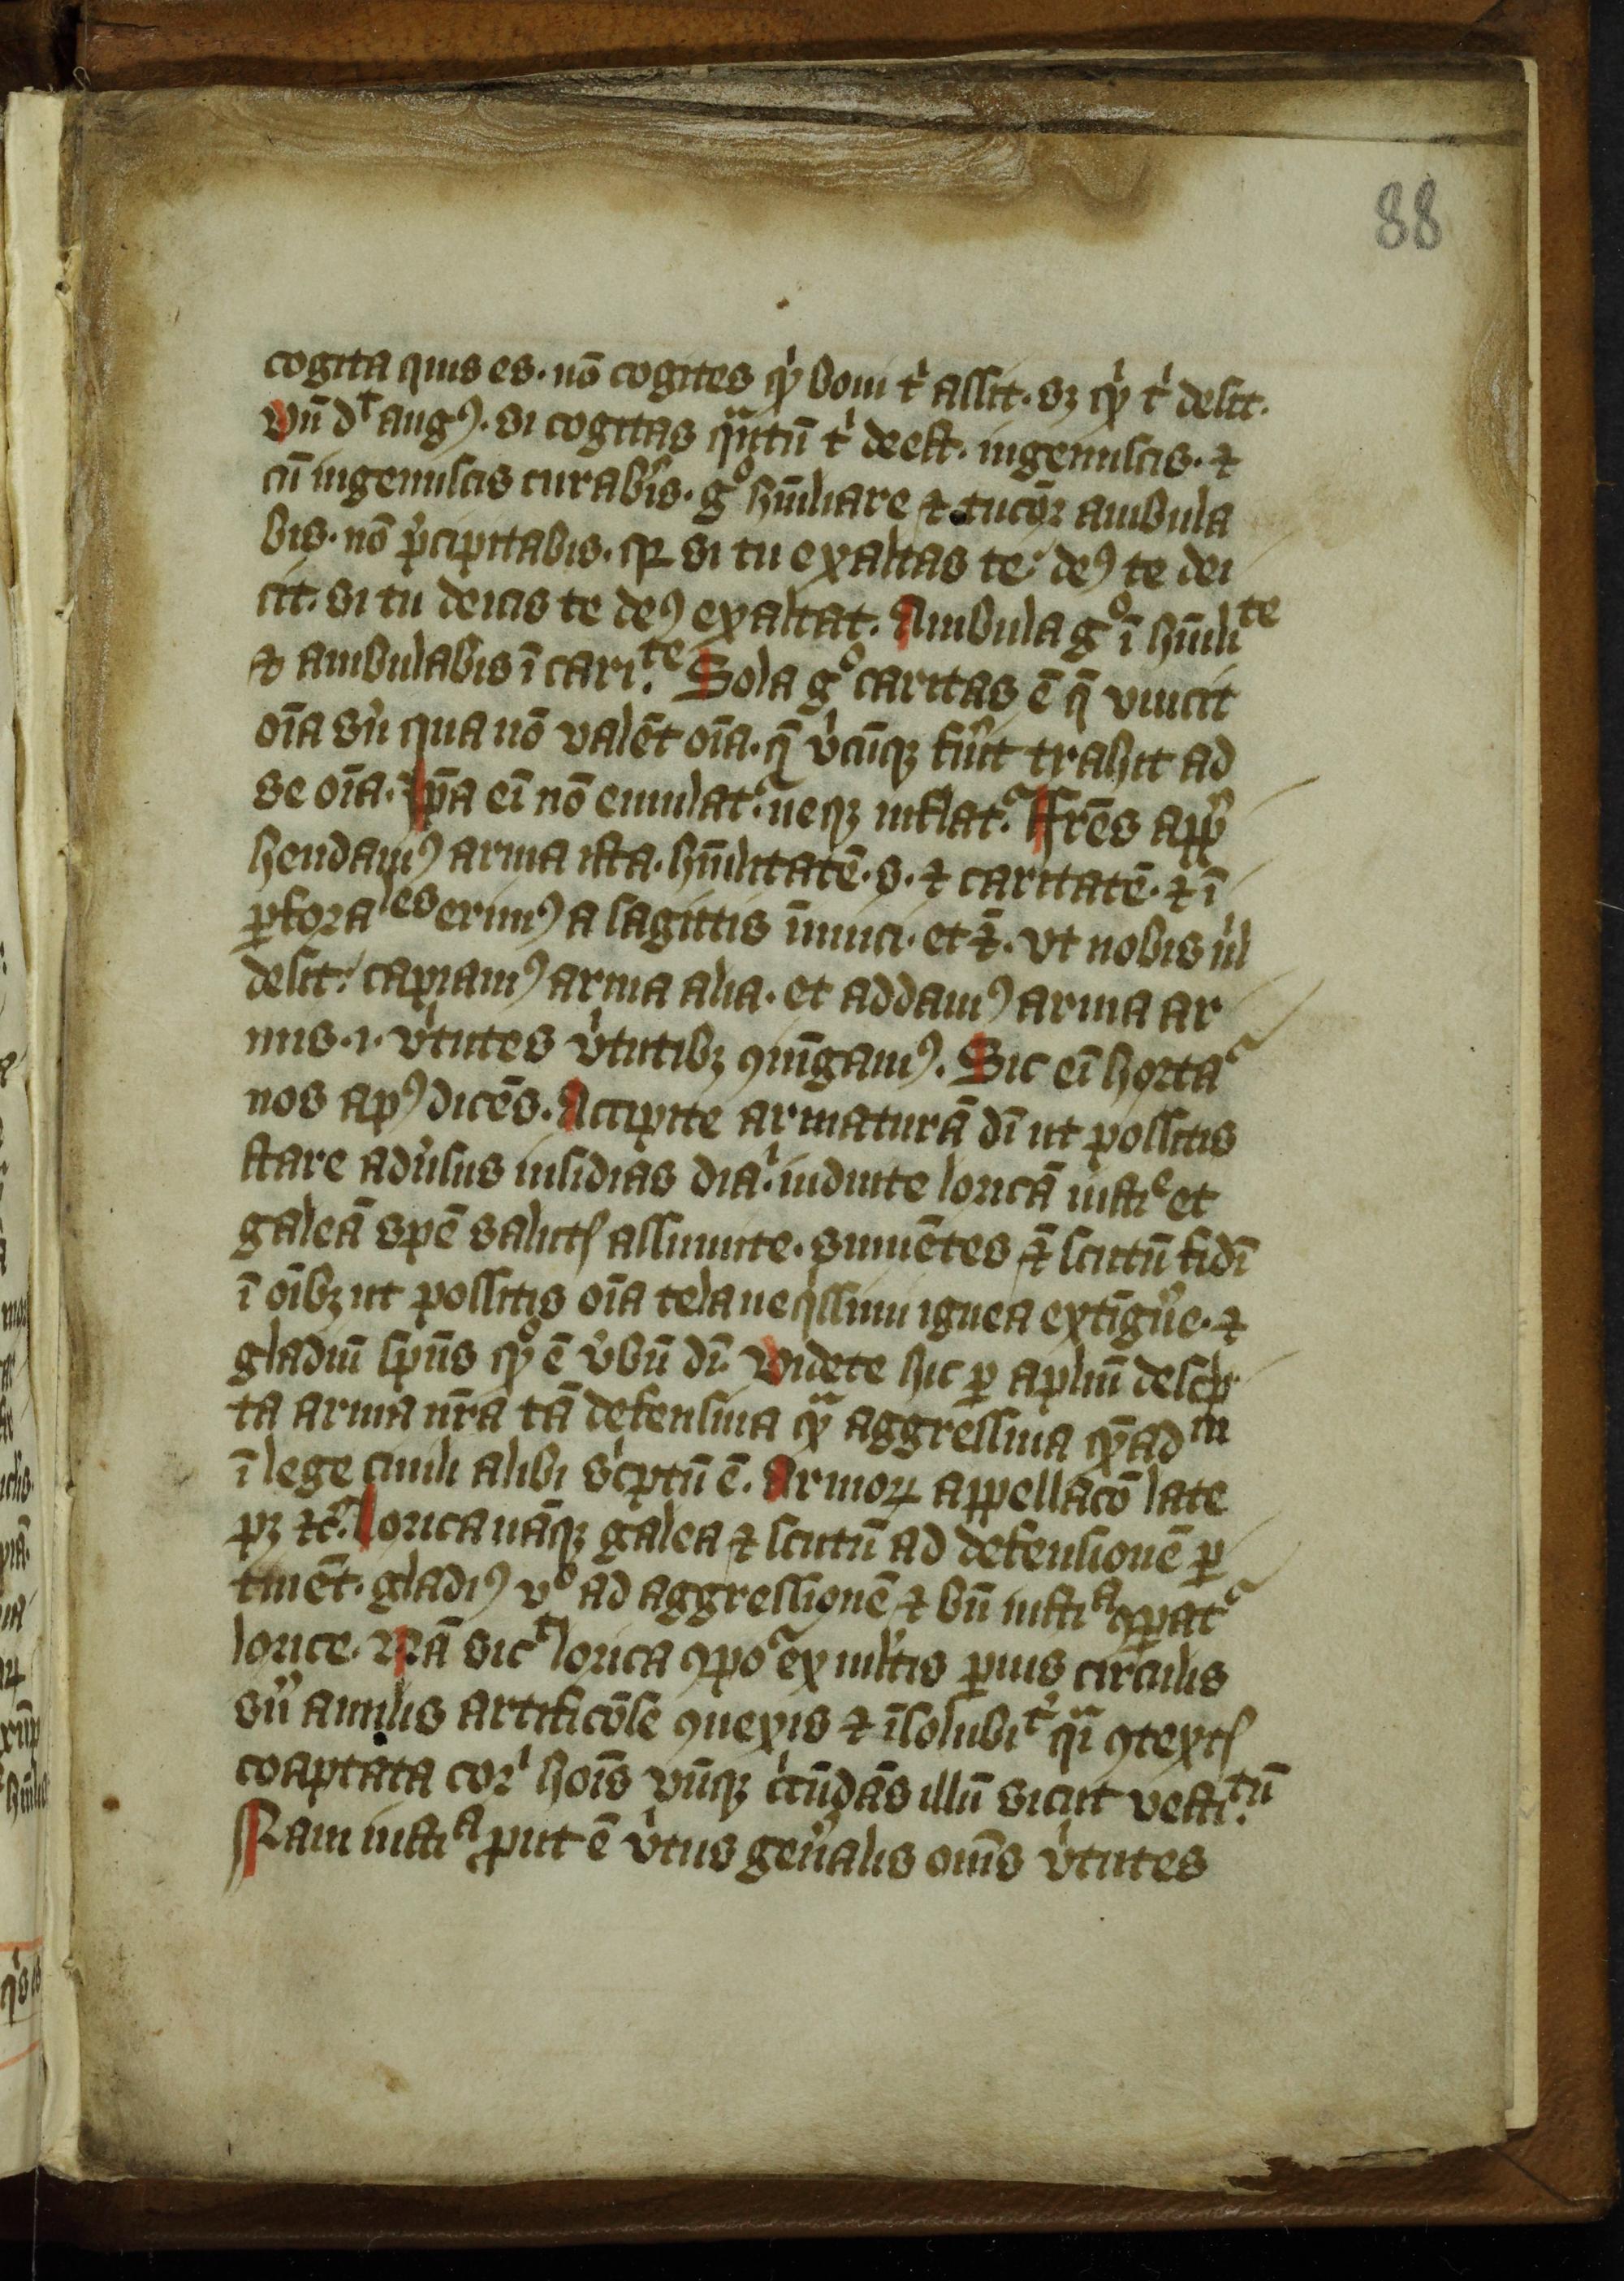 88
cogita quis es. nō cogites qͥd boni tͥ assit. sꝫ qͥd tͥ desit.
Vn̄ dͭ augꝰ. si cogitas qͣntū tͥ deest. ingemiscis. ⁊
cū ingemiscis curabis. gͦ hūiliare ⁊ tucōꝛ ambula
bis. nō p̄cipitabis. qꝛ si tu exaltas te deꝰ te dei
cit. si tu deicis te deꝰ exaltat. Ambula gͦ ī hūiliᵗᵉ
⁊ ambulabis ī cariᵗᵉ. Sola gͦ caritas ē q̄ vincit
oīa sn̄ qua nō valēt oīa. q̄ vͥcūqꝫ fūit trahit ad
se oīa. Ip̄a eī nō emulatᷣ. neqꝫ inflatᷣ. Frēs app̄
hendamꝰ arma ista. hūilitatē. s. ⁊ caritatē. ⁊ ī
ꝑforaˡᵉˢ erimꝰ a sagittis īimici. et ⁊̄. vt nobis nͥl
desit. capiamꝰ arma alia. et addamꝰ arma ar
mis. i. vͥtutes vͥtutibꝫ ꝯiūgamꝰ. Sic eī hortaᷣ
nos apꝰ dicēs. Accipite armaturā dī ut possitis
stare adūsus insidias diaͥ. induite loricā iustiᵉ et
galeā spē salutꝭ assumite. sumētes ⁊̄ scutū fidī
ī oībꝫ ut possitis oīa tela neqͥssimi ignea extīgūe. ⁊
gladiū sp̄us qͦd ē v̄bū dī. Videte hic ꝑ aplīm descp̄
ta arma nr̄a tā defensiua qͣ aggressiua qm̄adᵐ
ī lege ciuili alibi sͥptū ē. Armoꝝ appellacō late
pꝫ ⁊c̄. Lorica nāqꝫ galea ⁊ scutū ad defensionē ꝑ
tinēt. gladiꝰ vͦ ad aggressionē ⁊ bn̄ iustiᵃ ꝯparatᷣ
lorice. Nā sicᵗ lorica ꝯpoᷣ ex mltis ꝑuis circulis
sū anulis artificōse ꝯnexis ⁊ īsolubiᵗͬ qͣi ꝯtextꝭ
coaptata corͥ hoīs vn̄qꝫ cͥcūdās illū sicut vestiᵗū.
Nam iustiᵃ ꝓut ē vͥtus gēnalis om̄s vͥtutes